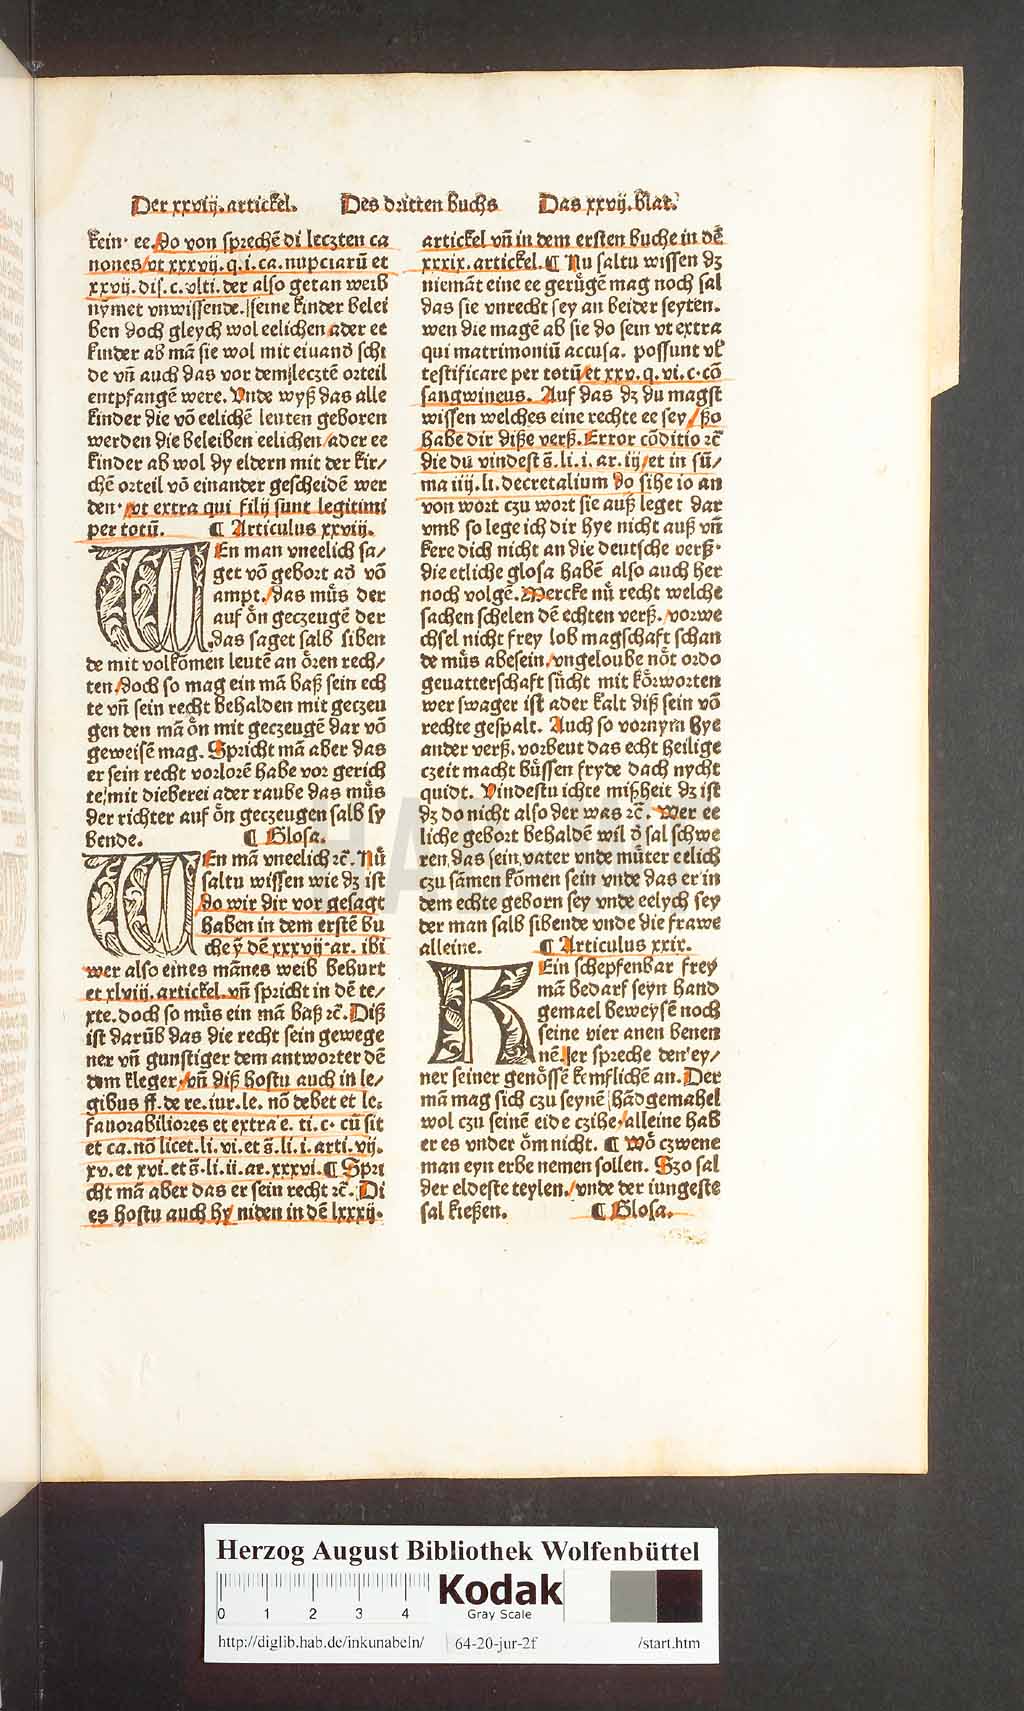 Der xxviij. artickel. Des dritten buchs Das xxvij. blat.
kein ee. Do von sprechē di leczten ca
nones/vt xxxvij. q. i. ca. nupciarū et
xxvij. dis. c. vlti. der also getan weib
nymet vnwissende. seine kinder belei
ben doch gleych wol eelichen/ader ee
kinder ab mā sie wol mit einand schi
de vn̄ auch das vor dem leczte orteil
entpfangē were. Vnde wyß das alle
kinder die vō eelichē leuten geboren
werden die beleiben eelichen/ader ee
kinder ab wol dy eldern mit der kir/
chē orteil vō einander gescheidē wer
den. vt extra qui filij sunt legitimi
per totū. ¶ Articulus xxviij.
WEn man vneelich sa/
get vō gebort ad vō
ampt./das můs der
auf ǒn geczeugē der
das saget salb siben
de mit volkōmen leutē an ǒren rech/
ten/doch so mag ein mā baß sein ech
te vn̄ sein recht behalden mit geczeu
gen den mā ǒn mit geczeugē dar vō
geweisē mag. Spricht mā aber das
er sein recht vorlorē habe vor gerich
te/mit dieberei ader raube das můs
der richter auf ǒn geczeugen salb sy
bende. ¶ Glosa.
WEn mā vneelich ꝛc̄. Nů
saltu wissen wie dz ist
do wir dir vor gesagt
haben in dem erstē bu
che ȳ dē xxxvij ar. ibi
wer also eines mānes weib behurt
et xlviij. artickel. vn̄ spricht in dē te/
xte. doch so můs ein mā baß ꝛc̄. Diß
ist darūb das die recht sein gewege
ner vn̄ gunstiger dem antworter dē
dem kleger/vn̄ diß hostu auch in le/
gibus ff. de re. iur. le. nō debet et le:
fauorabiliores et extra e. ti. c. cū sit
et ca. nō licet. li. vi. et s̄. li. i. arti. vij.
xv. et xvi. et s̄. li. ii. ar. xxxvi. ¶ Spri
cht mā aber das er sein recht ꝛc̄. Di
es hostu auch hy niden in dē lxxxij.
artickel vn̄ in dem ersten buche in dē
xxxix. artickel. ¶ Nu saltu wissen dz
niemāt eine ee gerůgē mag noch sal
das sie vnrecht sey an beider seyten.
wen die magē ab sie do sein vt extra
qui matrimoniū accusa. possunt vl̄
testificare per totū/et xxv. q. vi. c. cō
sangwineus. Auf das dz du magst
wissen welches eine rechte ee sey/ßo
habe dir diße verß. Error cōditio ꝛc̄
die du vindest s̄. li. i. ar. iij/et in sū/
ma iiij. li. decretalium do sihe io an
von wort czu wort sie auß leget dar
vmb so lege ich dir hye nicht auß vn̄
kere dich nicht an die deutsche verß.
die etliche glosa habē also auch her
noch volgē. Mercke nů recht welche
sachen schelen dē echten verß./vorwe
chsel nicht frey lob magschaft schan
de můs abesein/vngeloube nǒt ordo
geuatterschaft sůcht mit kǒrworten
wer swager ist ader kalt diß sein vō
rechte gespalt. Auch so vornym hye
ander verß. vorbeut das echt heilige
czeit macht bůssen fryde dach nycht
quidt. Vindestu ichte mißheit dz ist
dz do nicht also der was ꝛc̄. Wer ee
liche gebort behaldē wil d sal schwe
ren das sein vater vnde můter eelich
czu sāmen kōmen sein vnde das er in
dem echte geborn sey vnde eelych sey
der man salb sibende vnde die frawe
alleine. ¶ Articulus xxix.
KEin schepfenbar frey
mā bedarf seyn hand
gemael beweysē noch
seine vier anen benen
nē. er spreche den ey/
ner seiner genǒssē kemflichē an. Der
mā mag sich czu seynē hādgemahel
wol czu seinē eide czihe/alleine hab
er es vnder ǒm nicht. ¶ Wǒ czwene
man eyn erbe nemen sollen. Szo sal
der eldeste teylen./vnde der iungeste
sal kießen. ¶ Glosa.
HAB-W
Herzog August Bibliothek Wolfenbüttel
0 1 2 3 4
Kodak
Gray Scale
http://diglib.hab.de/inkunabeln/ 64-20-jur-2f /start.htm